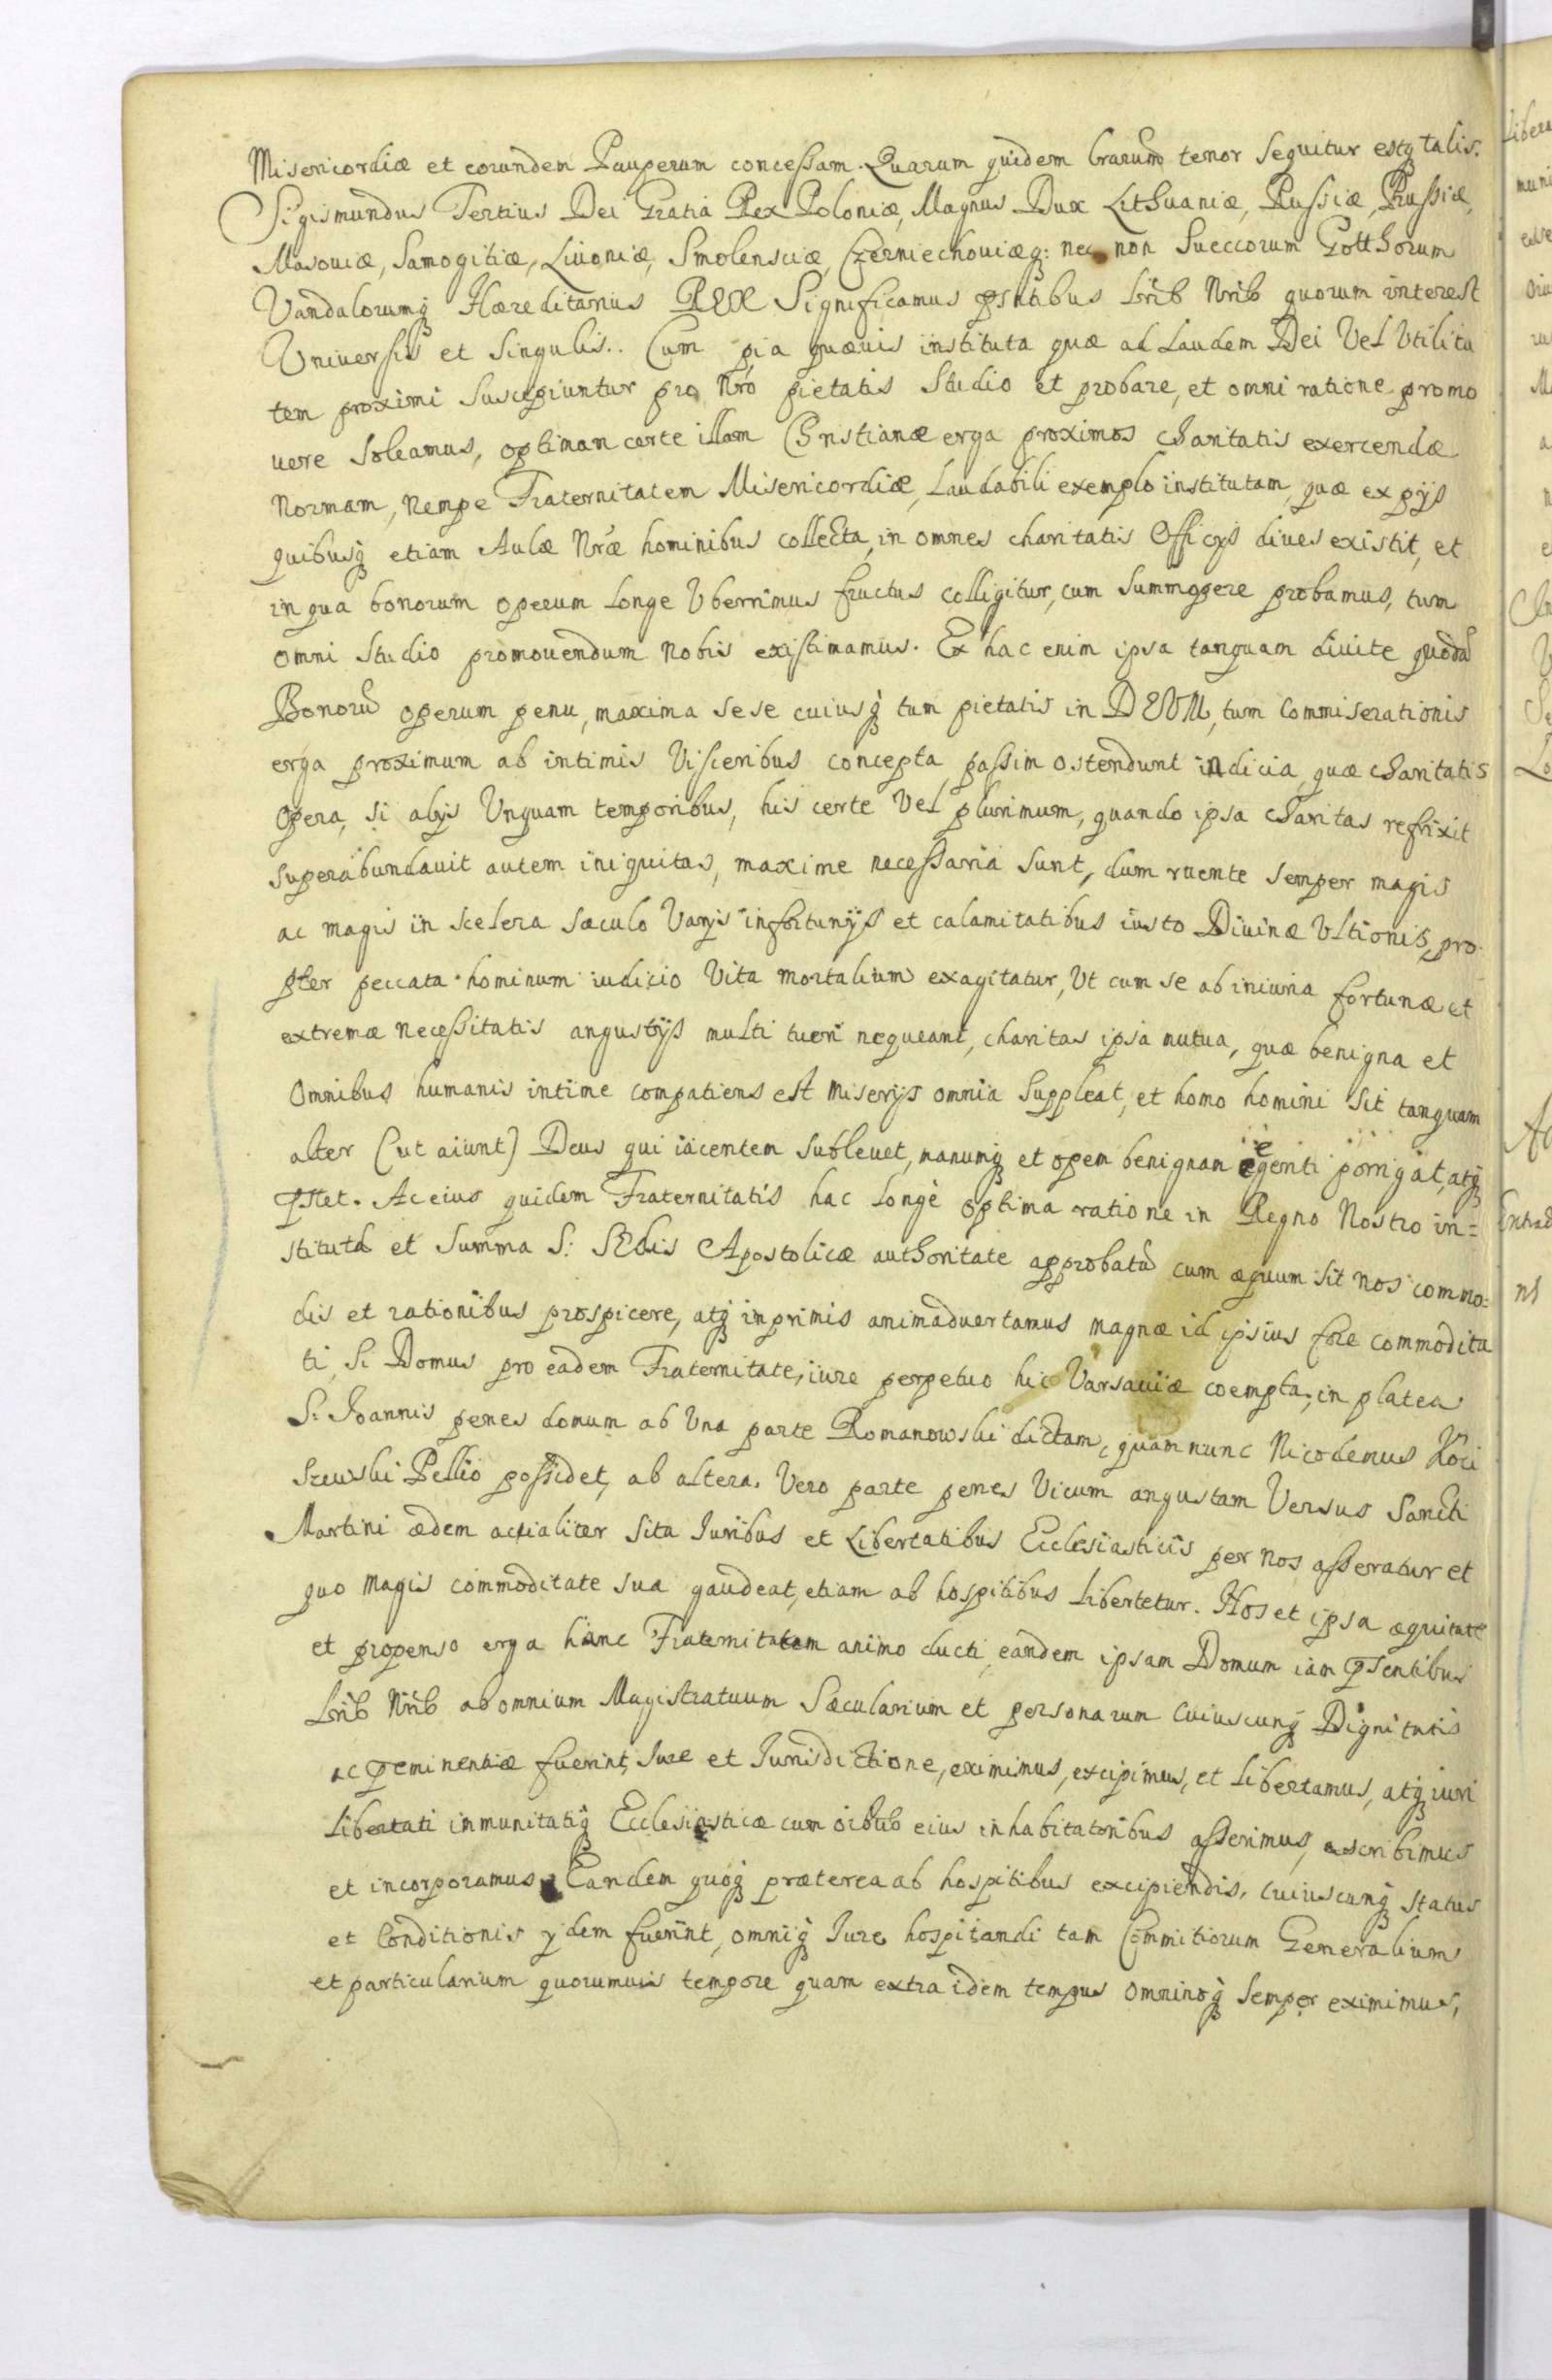 Misericordiæ et eorundem Pauperum concessam. Quarum quidem lrarum tenor sequitur estq talis.
Sigismundus Tertius Dei Gratia Rex Poloniæ, Magnus Dux Lithuaniæ, Russiæ, Prussiæ,
Masouiæ, Samogitiæ, Liuoniæ, Smolensciæ, Czerniechouiæq: nec non Sueccorum Gotthorum
Vandalorumq Hæreditarius REX Significamus pntibus Lrib Nrib quorum interest
Vniuersis et Singulis.. Cum pia quæuis instituta quæ ad Laudem Dei Vel Vtilita
tem proximi Suscipiuntur pro Nro pietatis Studio et probare, et omni ratione promo
uere Soleamus, optimam certe illam Christianæ erga proximos charitatis exercendæ
Normam, Nempe Fraternitatem Misericordiæ, Laudabili exemplo institutam, quæ ex pijs
quibusq etiam Aulæ Nræ hominibus collecta, in omnes charitatis Officijs diues existit, et
in qua bonorum operum Longe Vberrimus fructus colligitur, cum Summopere probamus, tum
omni Studio promouendum Nobis existimamus. Ex hac enim ipsa tanquam diuite quodã
Bonorũ operum penu, maxima sese cuiusq tum pietatis in DEUM, tum Commiserationis
erga proximum ab intimis Visceribus concepta, passim ostendunt indicia, quæ charitatis
Opera, si alijs Unquam temporibus, his certe Vel plurimum, quando ipsa charitas refrixit
Superabundauit autem iniquitas, maxime necessaria Sunt, dum ruente Semper magis
ac magis in Scelera Sæculo Varijs infortunijs et calamitatibus iusto Diuinæ Vltionis, pro
pter peccata hominum iudicio Vita mortalium exagitatur, Vt cum se ab iniuria fortunæ et
extremæ necessitatis angustijs multi tueri nequeant, charitas ipsa mutua, quæ benigna et
Omnibus humanis intime compatiens est Miserijs omnia Suppleat, et homo homini Sit tanquam
alter (ut aiunt) Deus qui iacentem Subleuet, manumq et opem benignam egenti porrigat, atq
pstet. Ac eius quidem Fraternitatis hac Longè optima ratione in Regno Nostro in=
stituta et Summa S: SEdis Apostolicæ authoritate approbatæ cum æquum Sit Nos commo:
dis et rationibus prospicere, atq inprimis animaduertamus magnæ id ipsius fore commodita
ti, Si Domus pro eadem Fraternitate, iure perpetuo hic Varsauiæ coempta, in platea
S: Joannis penes domum ab Vna parte Romanowski dictam, quam nunc Nicodemus Koci
Szewski Pellio possidet, ab altera. Vero parte penes Vicum angustam Versus Sancti
Martini ædem actialiter Sita Juribus et Libertatibus Ecclesiasticis per Nos asseratur et
quo Magis commoditate sua gaudeat, etiam ab hospitibus Libertetur. Nos et ipsa æquitate
et propenso erga hanc Fraternitatem animo ducti, eandem ipsam Domum iam psentibus
Lrib Nrib ab omnium Magistratuum Sæcularium et personarum Cuiuscunq Dignitatis
ac peminentiæ fuerint, Jure et Jurisdictione, eximimus, excipimus, et Libertamus, atq iuri
Libertati inmunitatiq Ecclesiasticæ cum oibus eius inhabitatoribus asserimus, ascribimus
et incorporamus Eandem quoq præterea ab hospitibus excipiendis, Cuiuscunq Status
et Conditionis ydem fuerint, omniq Jure hospitandi tam Commitiorum Generalium
et particularium quorumuis tempore quam extra idem tempus Omninoq Semper eximimus,